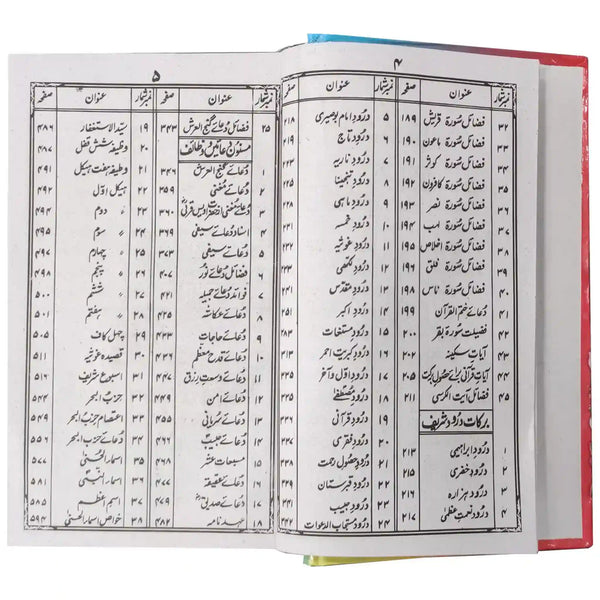 ۴
نمبر شمار عنوان صفحہ
۳۲ فضائل سورۃ قریش ۱۸۹
۳۳ فضائل سورۃ ماعون ۱۹۰
۳۴ فضائل سورۃ کوثر ۱۹۱
۳۵ فضائل سورۃ کافرون ۱۹۲
۳۶ فضائل سورۃ نصر ۱۹۳
۳۷ فضائل سورۃ لہب ۱۹۴
۳۸ فضائل سورۃ اخلاص ۱۹۵
۳۹ فضائل سورۃ فلق ۱۹۶
۴۰ فضائل سورۃ ناس ۱۹۸
۴۱ دعائے ختم القرآن ۱۹۹
۴۲ فضیلت سورۃ بقر ۲۰۰
۴۳ آیات سکینہ ۲۰۲
۴۴ آیات قرآنی برائے حصول برکت ۲۰۵
۴۵ فضائل آیت الکرسی ۲۱۱
برکات درود شریف
۱ درود ابراہیمی ۲۱۳
۲ درود خضری ۲۱۵
۳ درود ہزارہ ۲۱۶
۴ درود نعمت عظمیٰ ۲۱۷
نمبر شمار عنوان صفحہ
۵ درود امام بوصیری ۲۱۸
۶ درود تاج
۷ درود ناریہ
۸ درود تنجینا
۹ درود ماہی
۱۰ درود خمسہ
۱۱ درود غوثیہ
۱۲ درود لکھی
۱۳ درود مقدس
۱۴ درود اکبر
۱۵ درود مستغاث
۱۶ درود کبریت احمر
۱۷ درود اول و آخر
۱۸ درود مصطفےٰ
۱۹ درود قرآنی
۲۰ درود فقری
۲۱ درود حصول رحمت
۲۲ درود قبرستان
۲۳ درود حبیب
۲۴ درود مستجاب الدعوات
۵
نمبر شمار عنوان صفحہ
۲۵ فضائل دعائے گنج العرش ۳۴۳
مسنون دعائیں و وظائف
۱ دعائے گنج العرش ۳۴۶
۲ دعائے مغنی ۳۵۹
۳ دعائے مغنی از حضرت اویس قرنی ۳۶۰
۴ اسناد دعائے سیفی ۳۶۹
۵ دعائے سیفی ۳۷۳
۶ فضائل دعائے نور ۴۰۷
۷ فوائد دعائے جمیلہ ۴۲۱
۸ دعائے عکاشہ
۹ دعائے حاجات
۱۰ دعائے قدح معظم
۱۱ دعائے وسعت رزق
۱۲ دعائے امن
۱۳ دعائے سریانی
۱۴ دعائے حبیب
۱۵ مسبعات عشر
۱۶ دعائے عقیقہ ۴۷۷
۱۷ دعائے صدیق ۴۷۹
۱۸ عہد نامہ ۴۸۲
نمبر شمار عنوان صفحہ
۱۹ سید الاستغفار ۴۸۶
۲۰ وظیفہ شش قفل ۴۸۷
۲۱ وظیفہ ہفت ہیکل ۴۹۱
۲۲ ہیکل اول ۴۹۲
۲۳ 〃 دوم ۴۹۴
۲۴ 〃 سوم ۴۹۵
۲۵ 〃 چہارم ۴۹۷
۲۶ 〃 پنجم ۴۹۸
۲۷ 〃 ششم ۵۰۰
۲۸ 〃 ہفتم ۵۰۱
۲۹ چہل کاف
۳۰ قصیدہ غوثیہ ۵۱۱
۳۱ اسبوع شریف ۵۱۶
۳۲ حزب البحر
۳۳ اعتصام حزب البحر ۵۴۹
۳۴ دعائے حزب البحر
۳۵ اسماء الحسنیٰ ۵۷۷
۳۶ اسماء النبی
۳۷ اسم اعظم ۵۸۵
۳۸ خواص اسماء الحسنیٰ ۵۹۴